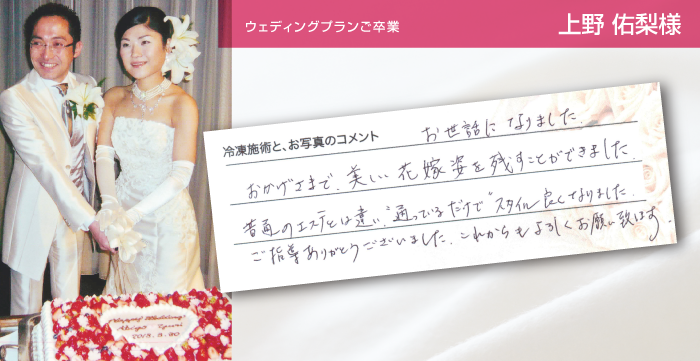 ウェディングプランご卒業
上野 佑梨様
冷凍施術と、お写真のコメント
お世話になりました。
おかげさまで、美しい花嫁姿を残すことができました。
普通のエステとは違い、通っているだけで"スタイル良くなりました。
ご指導ありがとうございました。これからもよろしくお願い致します。
Happy Wedding
2013.3.30